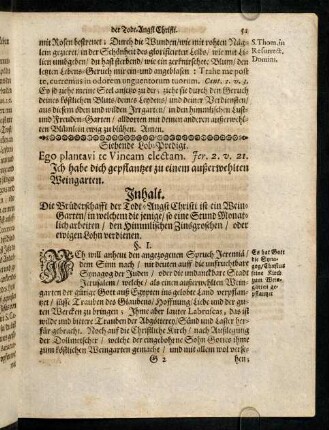 der Todt-Angst Christi. 51
mit Rosen bestrewet; Durch die Wunden/ wie mit rohten Näg-
len gezieret/ in der Schönheit des glorificierten Leibs/ wie mit Li-
lien umbgeben/ du hast sterbend/ wie ein zerknirschte Blum/ den
letzten Lebens-Geruch mir eyn und angeblasen: Trahe me post
te, curremus in odorem unguentorum tuorum. Cant. 1. v. 3.
Es so ziehe meine Seel anjetzo O JEsu! durch den Geruch
deines kostlichen Bluts/ deines Leydens/ und deiner Verdiensten/
aus disem öden und wilden Irrgarten/ in den himmlischen Lust-
und Freuden-Garten/ alldorten mit denen anderen außerwehl-
ten Blümlein ewig zu blühen. Amen.
S. Thom. in
Resurrect.
Domini.
Siebende Lob-Predigt.
Ego plantavi te Vineam electam. Jer. 2. v. 21.
Ich habe dich gepflantzet zu einem außerwehlten
Weingarten.
Inhalt.
Die Brüderschafft der Todt-Angst Christi ist ein Wein-
Garten/ in welchem die jenige/ so eine Stund Monat-
lich arbeiten/ den Himmlischen Zinsgroschen/ oder
ewigen Lohn verdienen.
§. I.
ICh will anheut den angezogenen Spruch Jeremiä/
dem Sinn nach/ nit deuten auff die unfruchtbare
Synagog der Juden/ oder die undanckbare Stadt
Jerusalem/ welche/ als einen außerwöhlten Wein-
garten der gütige Gott auß Egypten ins gelobte Land verpflan-
tzet/ süsse Trauben des Glaubens/ Hoffnung/ Liebe und der gu-
ten Wercken zu bringen; Ihme aber lauter Labruscas, das ist
wilde und bittere Trauben der Abgötterey/ Sünd und Laster her-
für gebracht. Noch auf die Christliche Kirch/ nach Außlegung
der Dollmetscher/ welche der eingebohrne Sohn Gottes ihme
zum köstlichen Weingarten gemacht/ und mit allem wol verse-
Es hat Gott
die Syna-
gog/ Christus
seine Kirch
zum Wein-
garten ge-
pflantzet
G 2 hen/